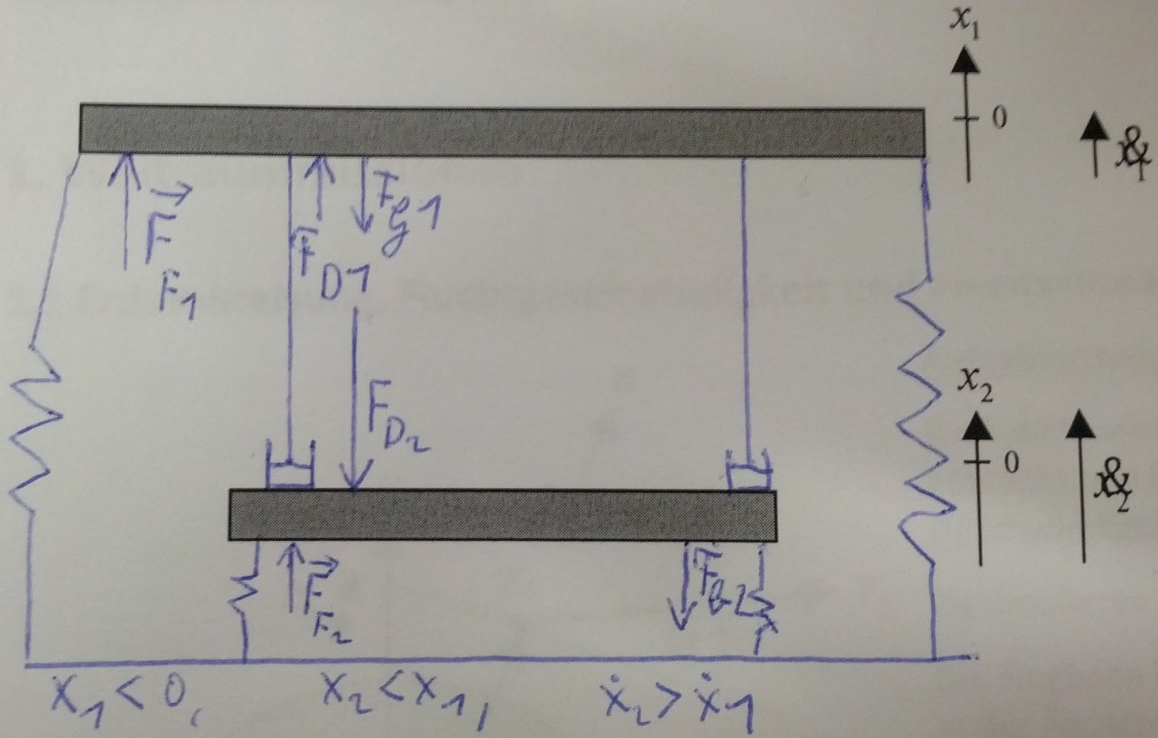 x₁
0
x&₁
F⃗_F₁
F_D1
F_G1
F_D₂
x₂
0
x&₂
F⃗_F₂
F_G2
x₁ < 0, x₂ < x₁, ẋ₂ > ẋ₁